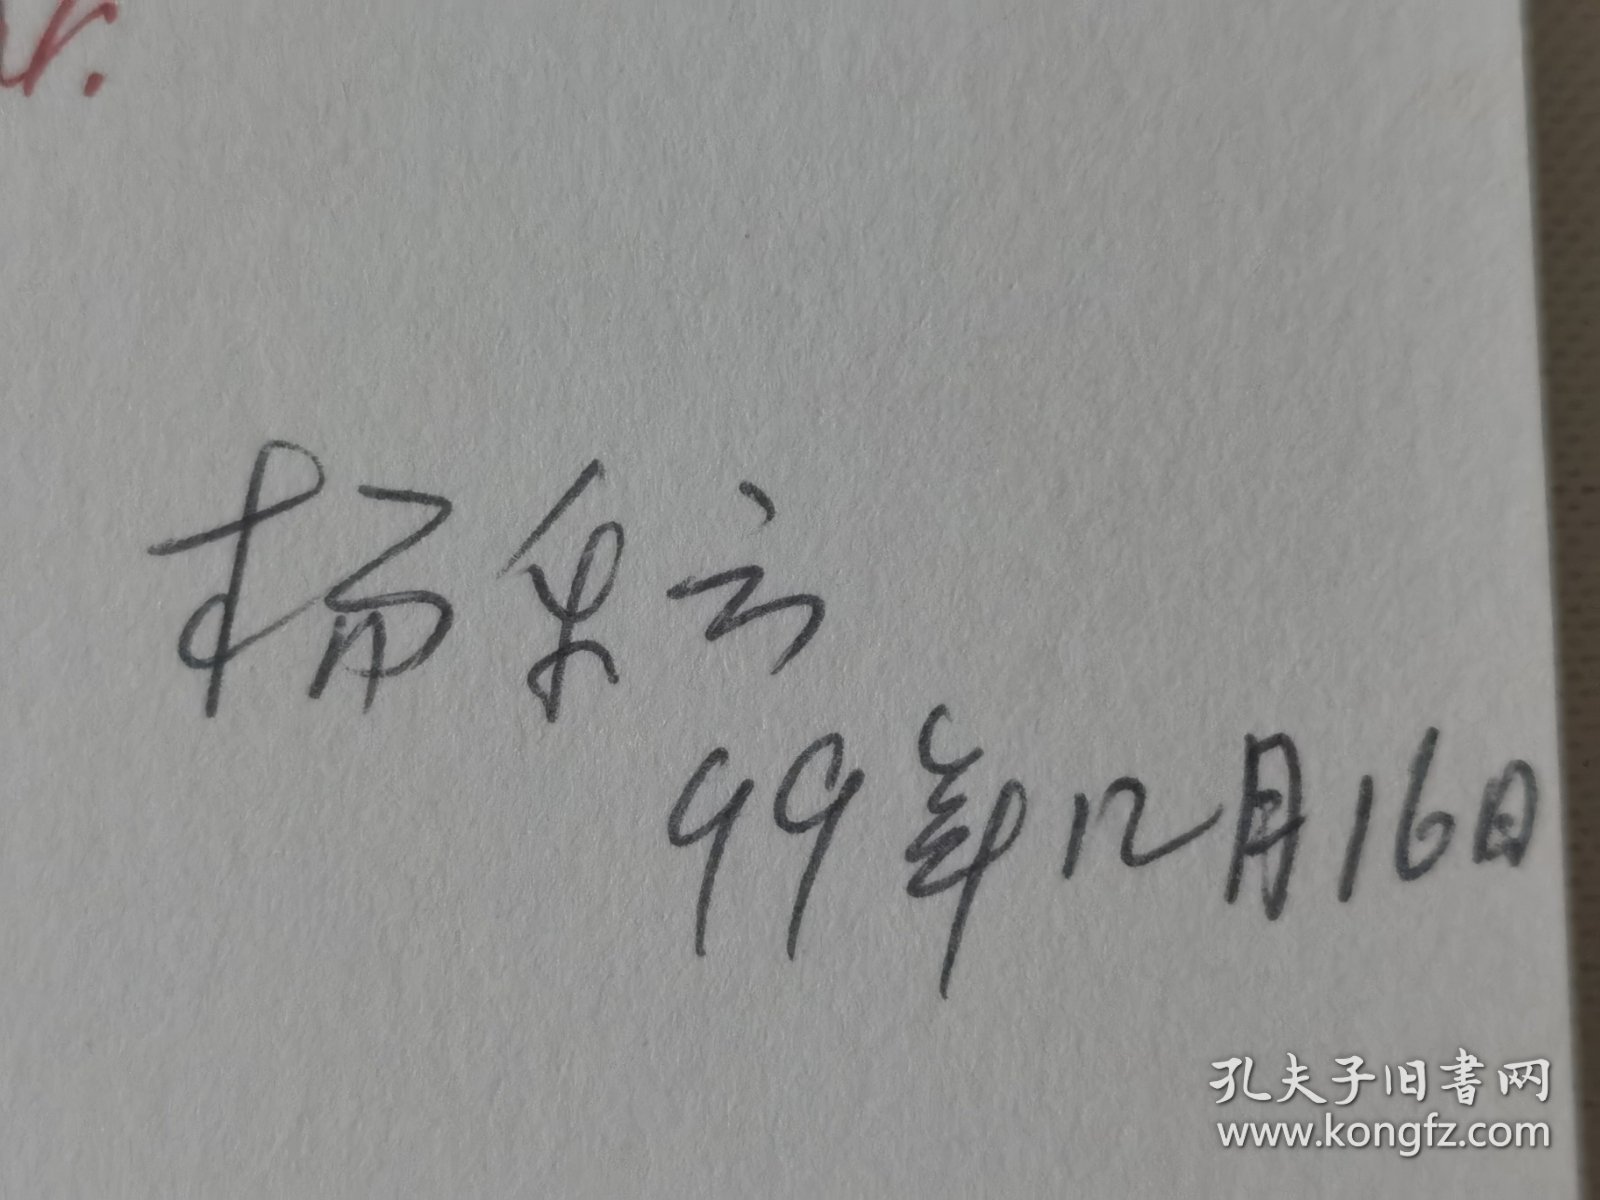 r.
杨乐云
99年12月16日
孔夫子旧书网
www.kongfz.com